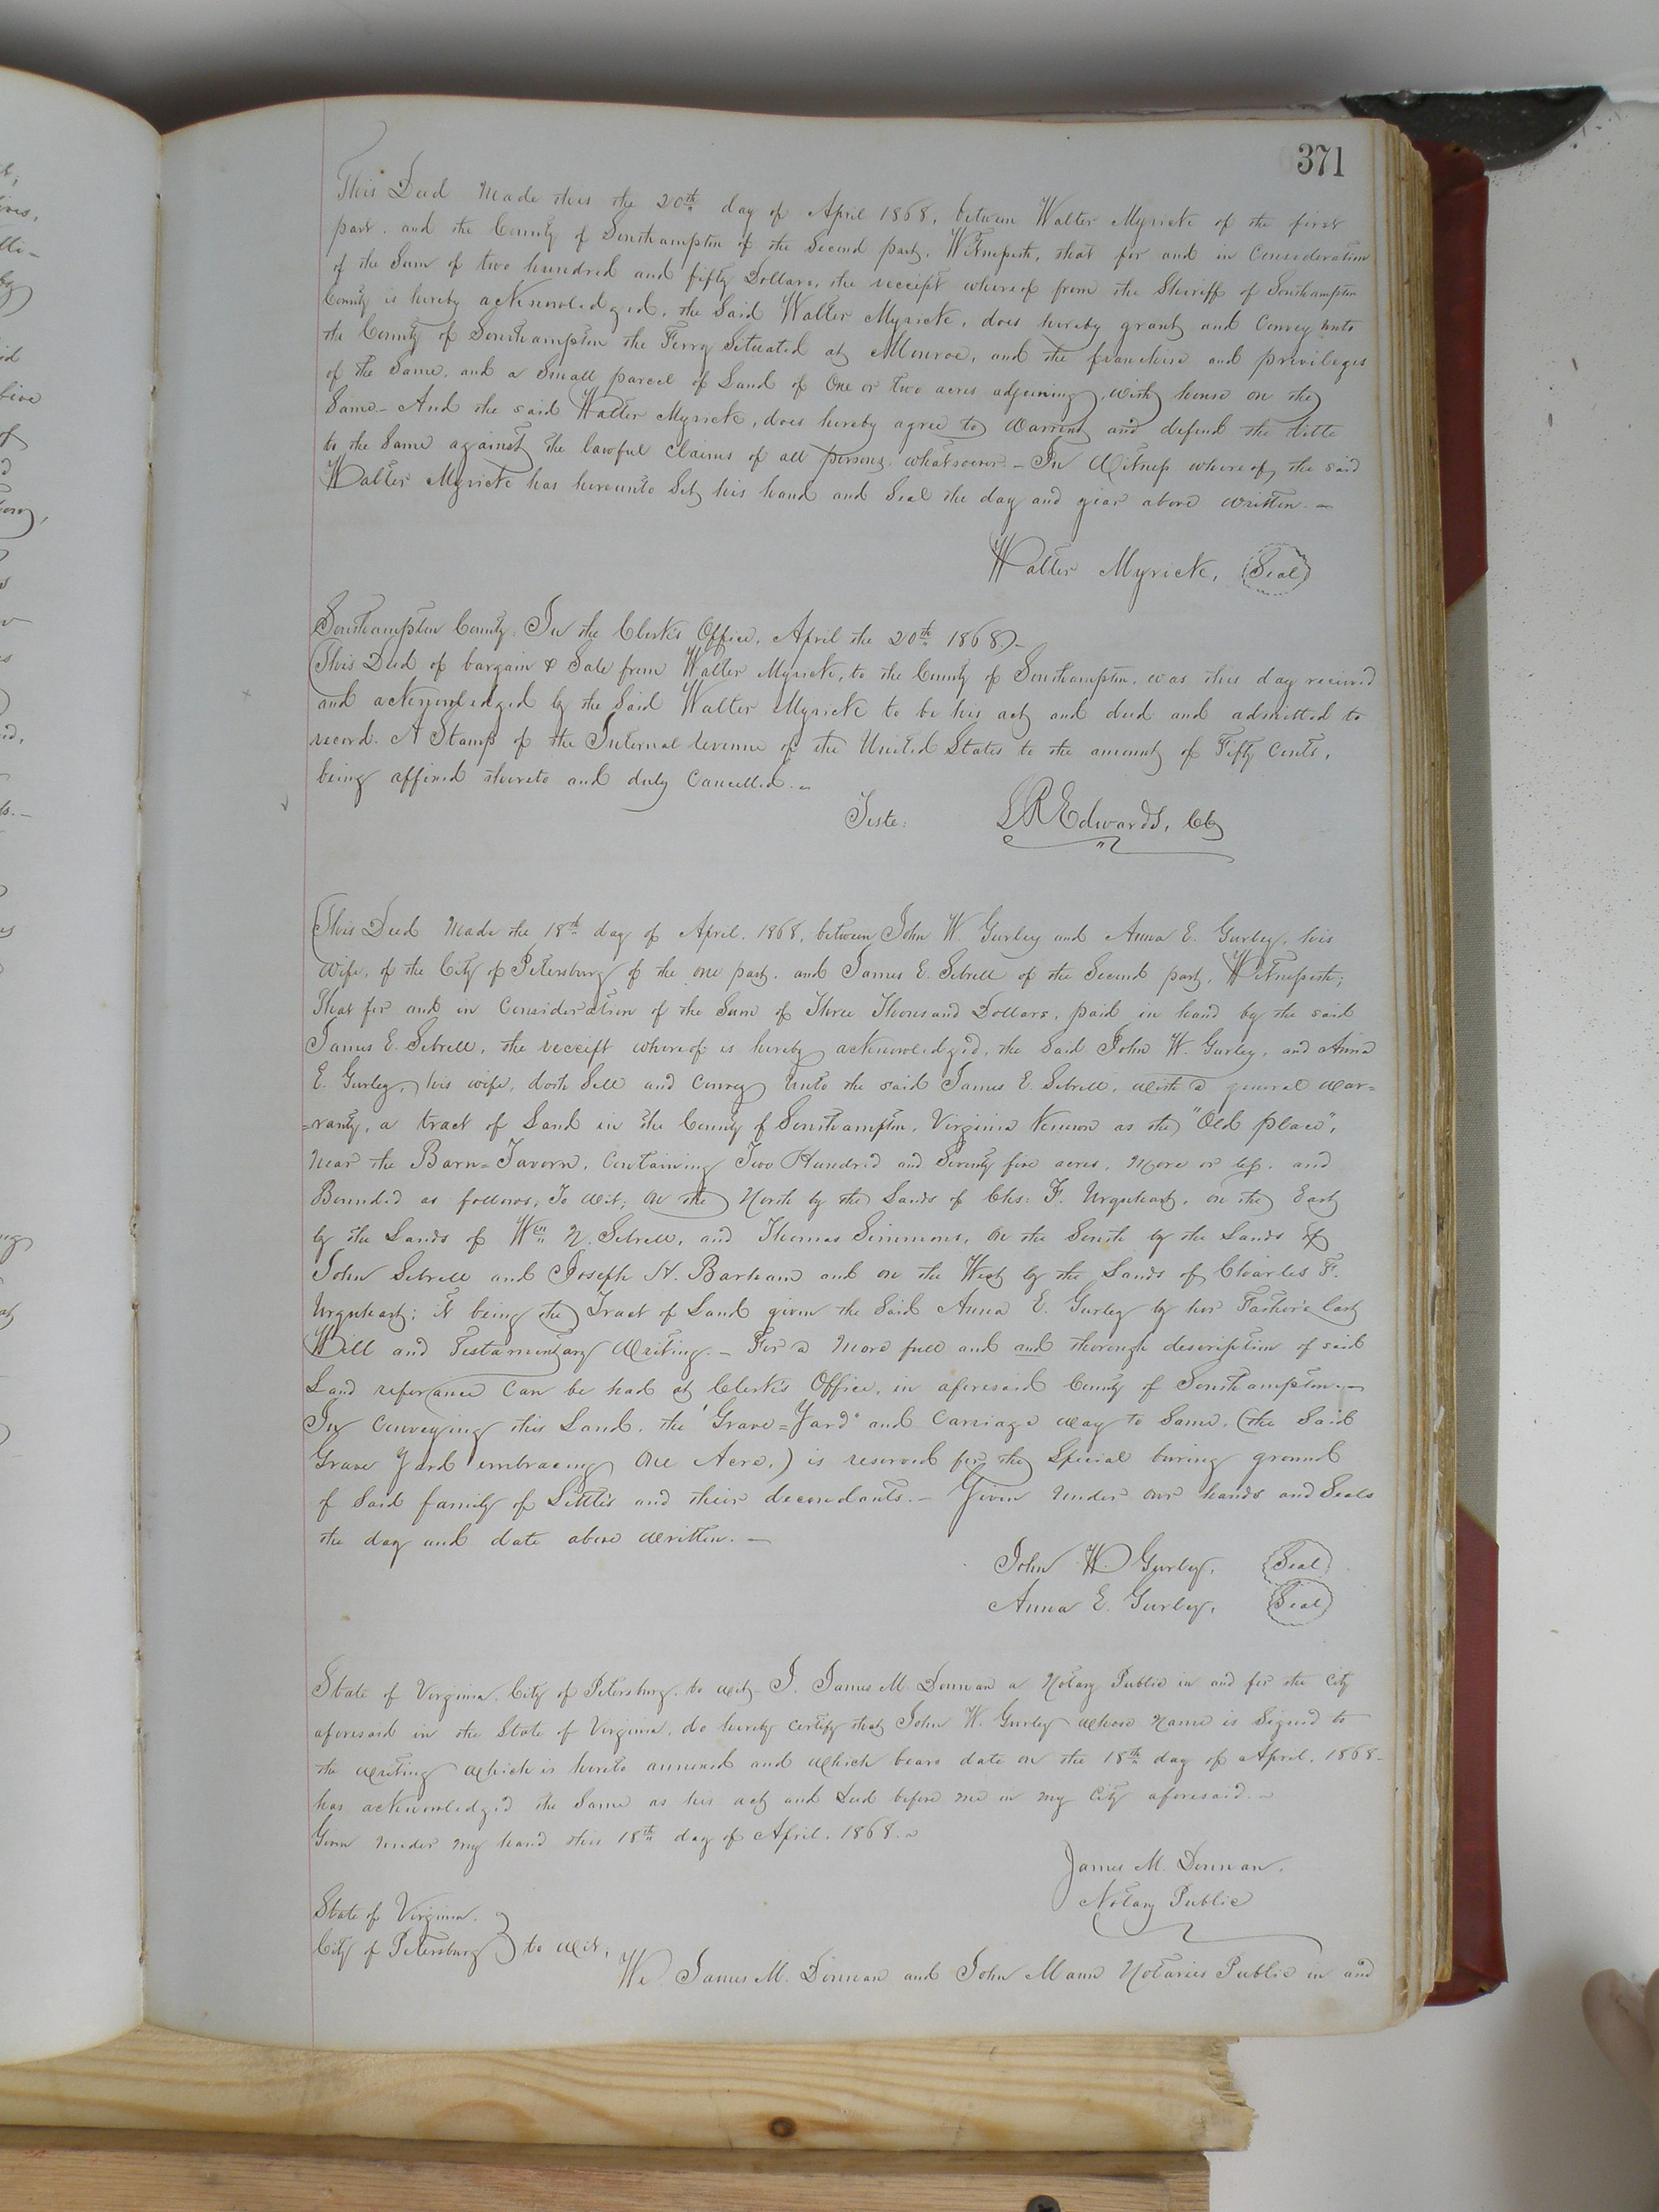 371
This Deed Made this the 20th day of April 1868, between Walter Myrick of the first
part, and the County of Southampton of the Second part, Witnesseth, that for and in Consideration
of the Sum of two hundred and fifty Dollars, the receipt whereof from the Sheriff of Southampton
County is hereby acknowledged, the Said Walter Myrick, does hereby grant and Convey unto
the County of Southampton the Ferry Situated at Monroe, and the franchise and privileges
of the Same, and a Small parcel of Land of One or Two acres adjoining, with house on the
Same- And the said Walter Myrick, does hereby agree to Warrent and defend the title
to the Same against the lawful claims of all persons whatsoever.- In Witness whereof, the said
Walter Myrick has hereunto Set his hand and Seal the day and year above written.-
Walter Myrick, Seal
Southampton County, In the Clerk's Office, April the 20th 1868-
This Deed of bargain & Sale from Walter Myrick, to the County of Southampton, was this day received
and acknowledged by the Said Walter Myrick to be his act and deed and admitted to
record. A Stamp of the Internal Revenue of the United States to the amount of Fifty Cents,
being affixed thereto and duly Cancelled.-
Teste: LREdwards, Clk
This Deed Made the 18th day of April, 1868, between John W. Gurley and Anna E. Gurley, his
Wife, of the City of Petersburg of the one part, and James E. Sebrell of the Second part, Witnesseth;
That for and in Consideration of the Sum of Three Thousand Dollars, paid in hand by the said
James E. Sebrell, the receipt whereof is hereby acknowledged, the Said John W. Gurley, and Anna
E. Gurley, his wife, doth Sell and Convey Unto the said James E. Sebrell, with a general War=
=ranty, a tract of Land in the County of Southampton, Virginia Known as the "Old place",
Near the Barn=Tavern, Containing Two Hundred and Seventy five acres, More or less, and
Bounded as follows, To Wit; On the North by the Lands of Chs: F. Urquhart, on the East
by the Lands of Wm N. Sebrell, and Thomas Simmons, On the South by the Lands of
John Sebrell and Joseph H. Barham and on the West by the Lands of Charles F.
Urquhart; it being the Tract of Land given the Said Anna E. Gurley by her Father's last
Will and Testamentary Writing.- For a More full and and thorough description of said
Land referance Can be had at Clerk's Office, in aforesaid County of Southampton.-
In Conveying this Land, the "Grave=Yard" and Carriage way to Same, (the Said
Grave Yard embracing One Acre,) is reserved for the Special buring ground
of Said family of Little's and their decendants.- Given Under our hands and Seals
the day and date above Written.-
John W Gurley, Seal
Anna E. Gurley, Seal
State of Virginia, City of Petersburg, to wit- I, James M. Donnan a Notary Public in and for the City
aforesaid in the State of Virginia, do hereby certify that John W. Gurley whose Name is Signed to
the Writing Which is hereto annexed and Which bears date on the 18th day of April, 1868-
has acknowledged the Same as his act and Deed before me in my City aforesaid.-
Given Under my hand this 18th day of April, 1868.-
James M. Donnan,
Notary Public
State of Virginia,
City of Petersburg } to wit,
We James M. Donnan and John Mann Notaries Public in and